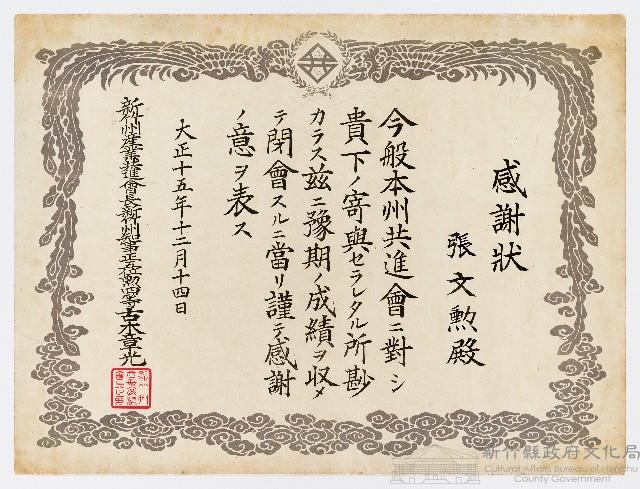 感謝狀
張文勲殿
今般本州共進會ニ對シ
貴下ノ寄與セラレタル所尠
カラス玆ニ豫期ノ成績ヲ収メ
テ閉會スルニ當リ謹テ感謝
ノ意ヲ表ス
大正十五年十二月十四日
新竹州產業共進會長新竹州知事正五位勳四等古木章光
新竹縣政府文化局
Cultural Affairs Bureau of Hsinchu
County Government